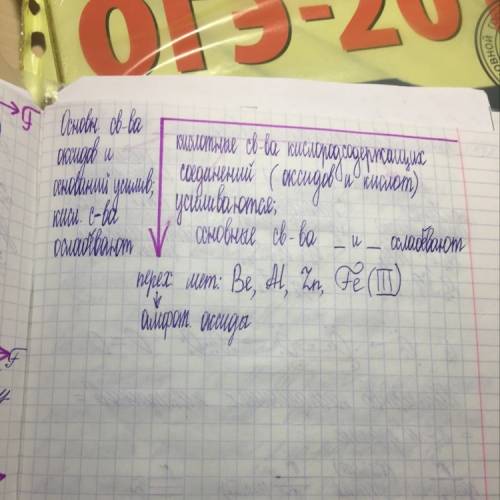 ОГЭ-20
Основн св-ва
оксидов и
оснований усилив;
кисл с-ва
ослабевают
кислотные св-ва кислородсодержащих
соединений (оксидов и кислот)
усиливаются;
основные св-ва _ и _ ослабвают
перех мет: Be, Al, Zn, Fe (III)
амфот. оксиды